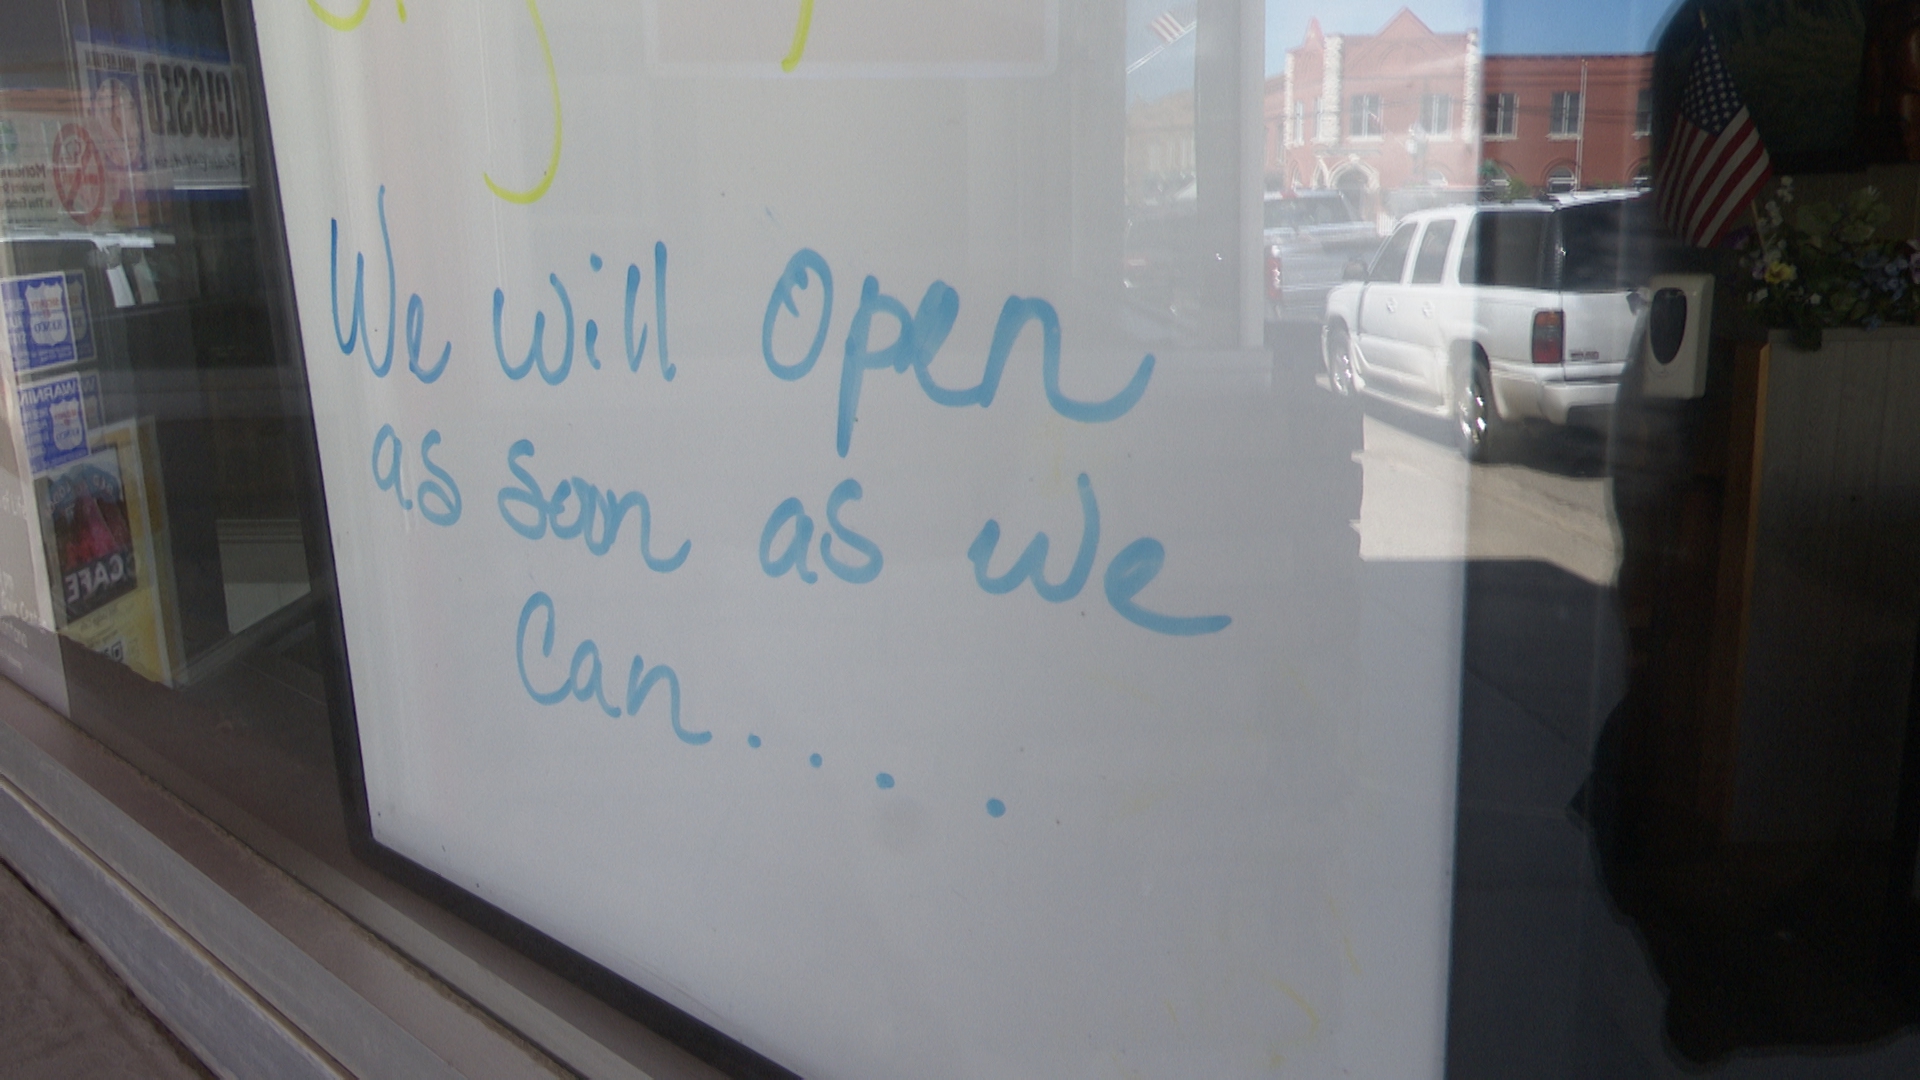 CLOSED
WARNIN
CAFE
We will Open
as soon as we
Can....